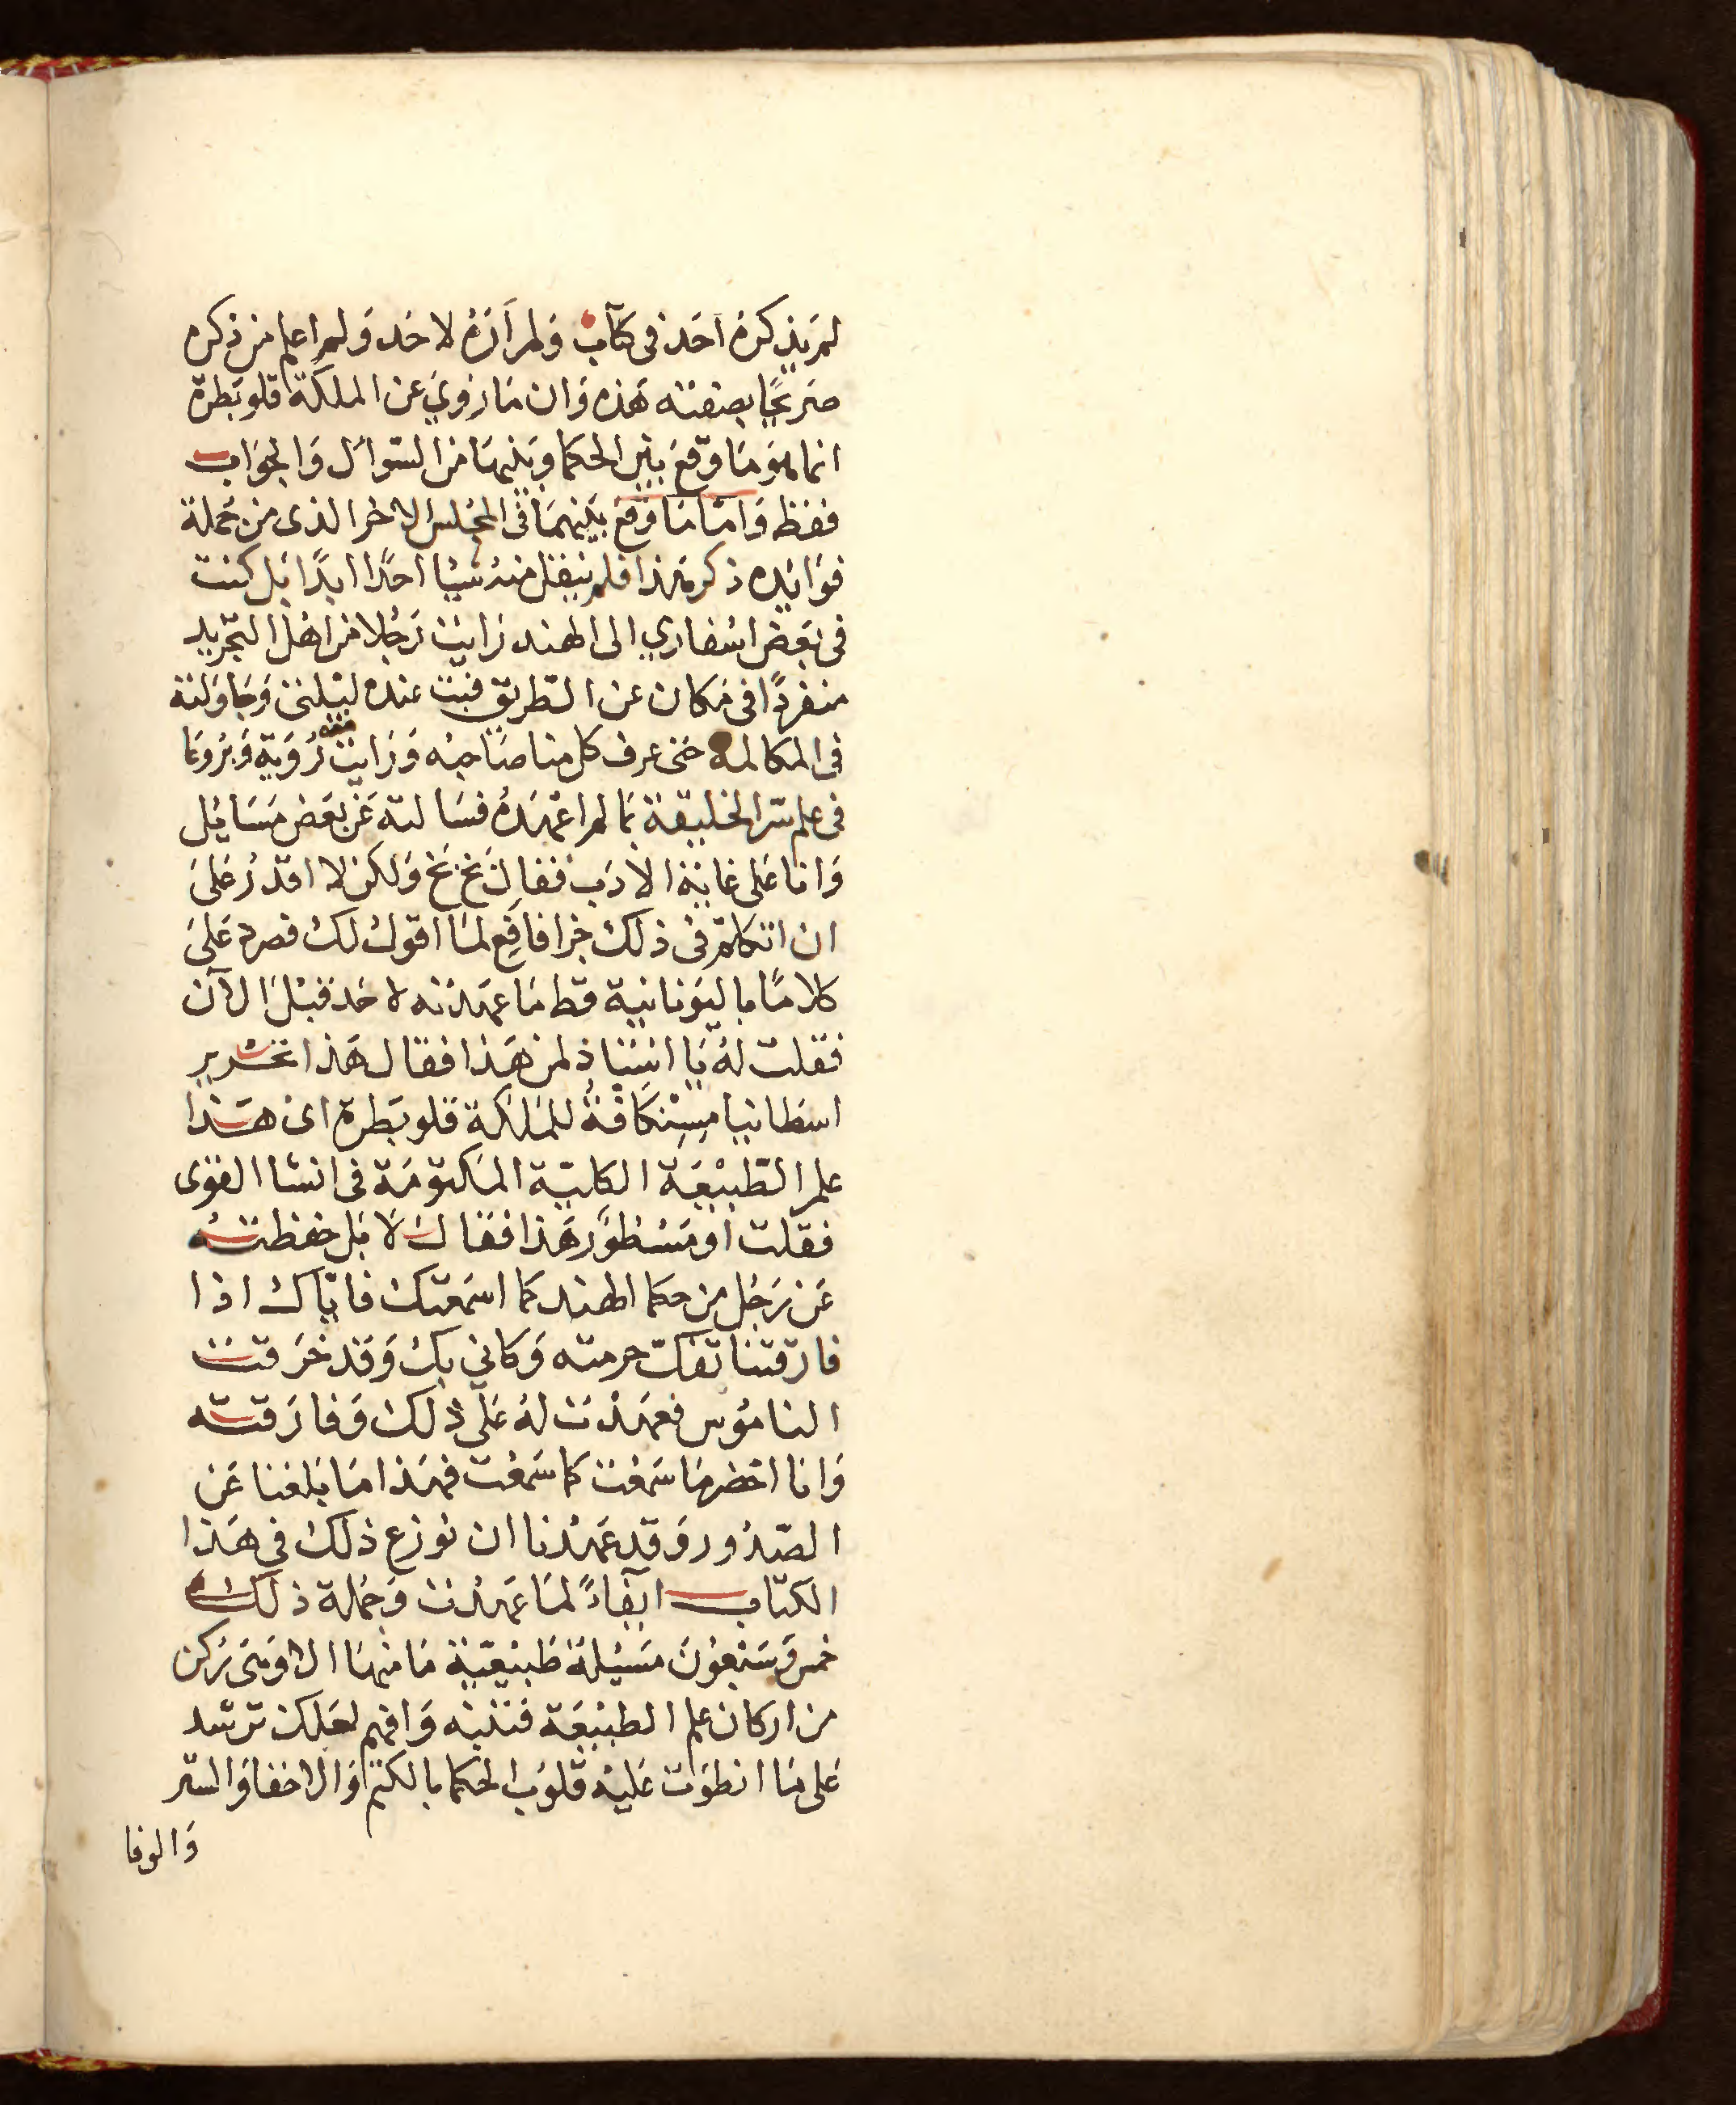 لم يذكره احد فى كتاب ولم اره لاحد ولم اعلم من ذكره
صريحًا بصفته هذه وان ما روي عن الملكة قلوبطرة
انما هو ما وقع بين الحكما وبينها من السوال والجواب
فقط واما ما وقع بينهما فى المجلس الاخر الذى من جملة
فوايده ذكر هذا فلم ينقل منه شيا احدًا ابدًا بل كنت
فى بعض اسفاري الى الهند رايت رجلا من اهل التجريد
منفردًا فى مكان عن الطريق فبت عنده ليلتى وجاولته
فى المكالمه حتى عرف كل منا صاحبه ورايت معه رُوية
فى علم سر الخليقة بما لم اعهده فسالته عن بعض مسايل
وانا على غاية الادب فقال بخ بخ ولكن لا اقدر على
ان اتكلم فى ذلك جزافا فع لما اقول لك فسرد على
كلامًا باليونانية قط ما عهدته لاحد قبل الآن
فقلت له يا استاذ لمن هذا فقال هذا تحرير
اسطانيا مستكافة للملكة قلوبطرة اى هذا
علم الطبيعة الكلية المكتومة فى انشا القوى
فقلت او مسطور هذا فقال لا بل حفظته
عن رجل من حكما الهند كما اسمعتك فاياك اذا
فارقتنا تفك حرمته وكاني بك وقد خرقت
الناموس فعهدت له على ذلك وفارقته
وانا احضر ما سمعت كما سمعت فهذا ما بلغنا عن
الصدور وقد عهدنا ان نوزع ذلك فى هذا
الكتاب ايفاءً لما عهدت وجملة ذلك
خمس وسبعون مسيلة طبيعية ما منها الا وهى ركن
من اركان علم الطبيعة فتنبه وافهم لعلك ترشد
على ما انطوت عليه قلوب الحكما بالكتم والاخفا والستر
والوفا